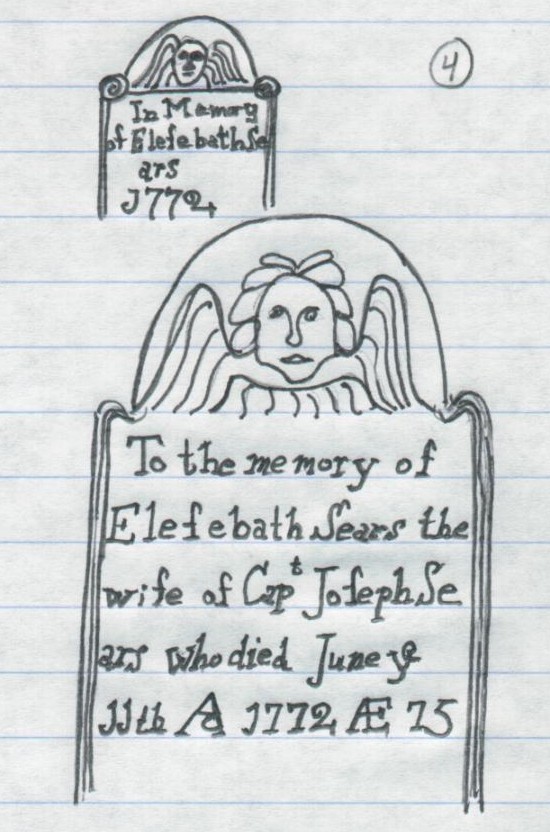 4
In Memory
of Elefebath Se
ars
1772
To the memory of
Elefebath Sears the
wife of Capt Jofeph Se
ars who died June ye
11th AD 1772 Æ 75